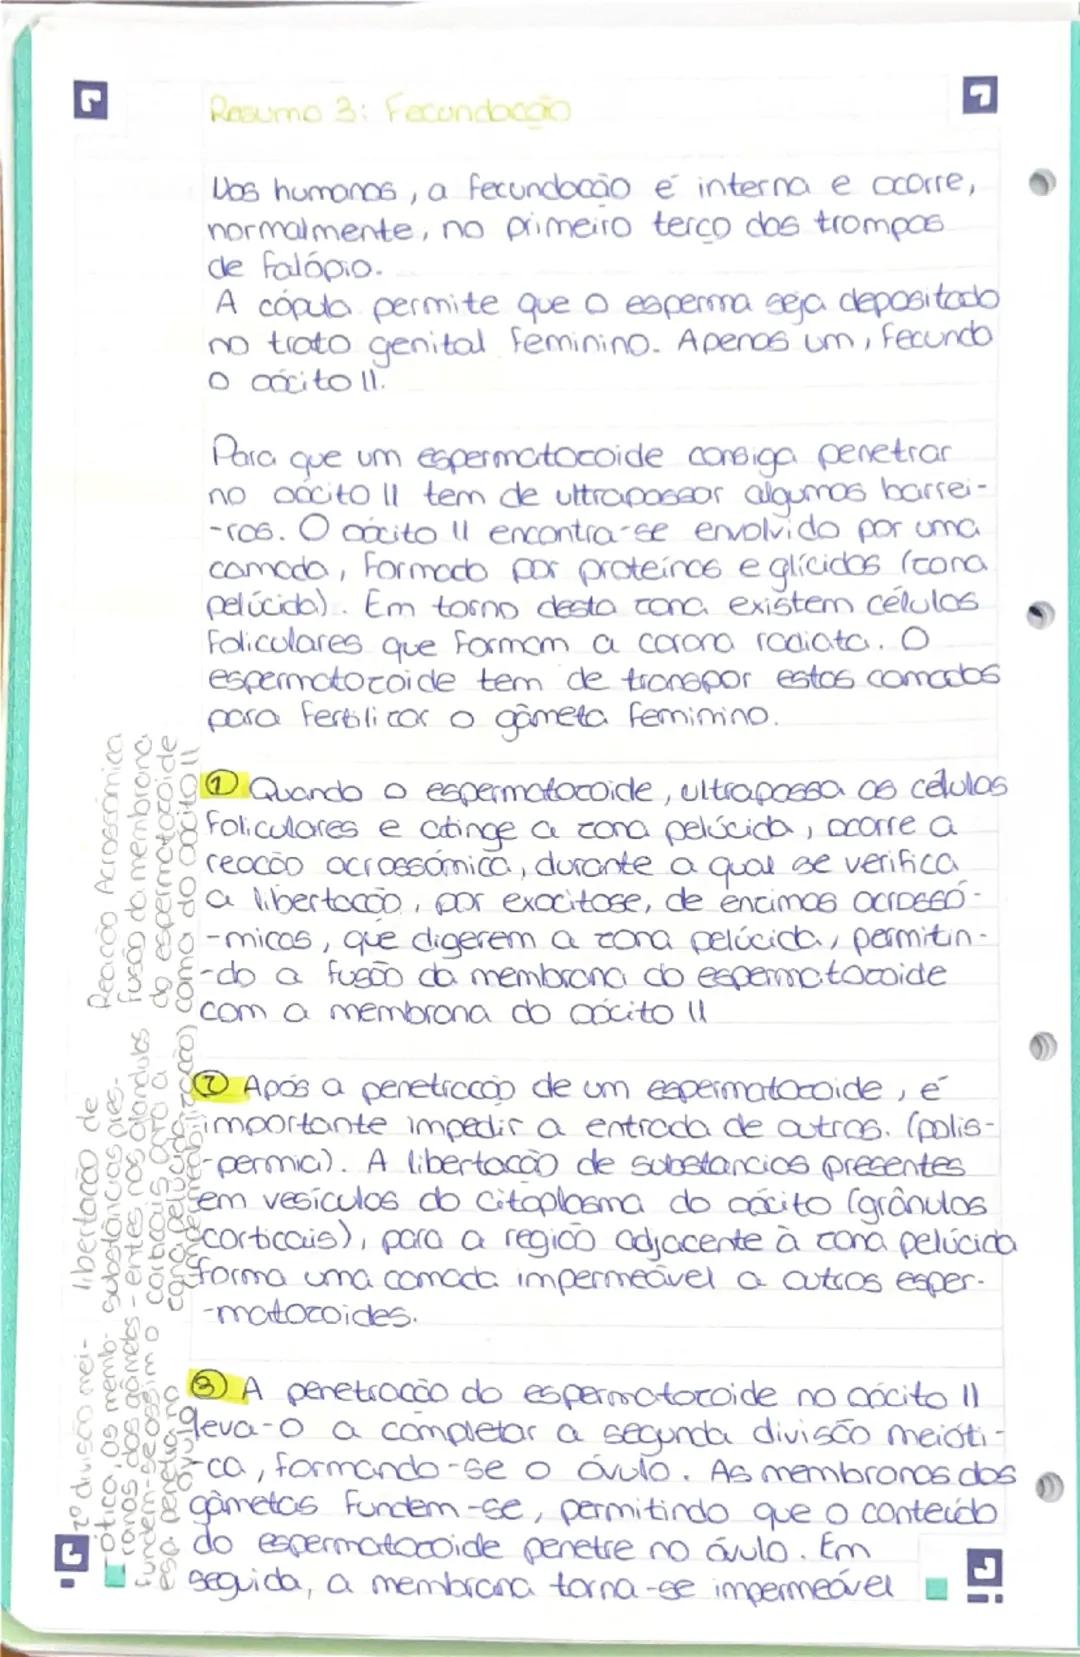 Resumo 3: Fecundação
Nos humanos, a fecundação é interna e ocorre,
normalmente, no primeiro terço das trompas
de falópio.
A cópula permite que o esperma seja depositado
no trato genital feminino. Apenas um, fecunda
o oócito II.
Para que um espermatozoide consiga penetrar
no oócito II tem de ultrapassar algumas barrei-
-ras. O oócito II encontra-se envolvido por uma
camada, formada por proteínas e glícidos (zona
pelúcida). Em torno desta zona existem células
foliculares que formam a corona radiata. O
espermatozoide tem de transpor estas camadas
para fertilizar o gâmeta feminino.
① Quando o espermatozoide, ultrapassa as células
foliculares e atinge a zona pelúcida, ocorre a
reação acrossómica, durante a qual se verifica
a libertação, por exocitose, de enzimas acrossó-
-micas, que digerem a zona pelúcida, permitin-
-do a fusão da membrana do espermatozoide
com a membrana do oócito II
② Após a penetração de um espermatozoide, é
importante impedir a entrada de outros. (polis-
-permia). A libertação de substancias presentes
em vesículas do citoplasma do oócito (grânulos
corticais), para a região adjacente à zona pelúcida
forma uma camada impermeável a outros esper-
-matozoides.
③ A penetração do espermatozoide no oócito II
leva-o a completar a segunda divisão meióti-
-ca, formando-se o óvulo. As membranas dos
gâmetas fundem-se, permitindo que o conteúdo
do espermatozoide penetre no óvulo. Em
seguida, a membrana torna-se impermeável
Reacão Acrossómica
fusão da membrana
do espermatozoide
com a do oócito II
libertação de
substâncias pres-
-entes nas glandulas
corticais, para a
zona pelúcida
2º divisão mei-
-ótica, as memb-
-ranas dos gâmetas
fundem-se assim o
esp. penetra no
óvulo